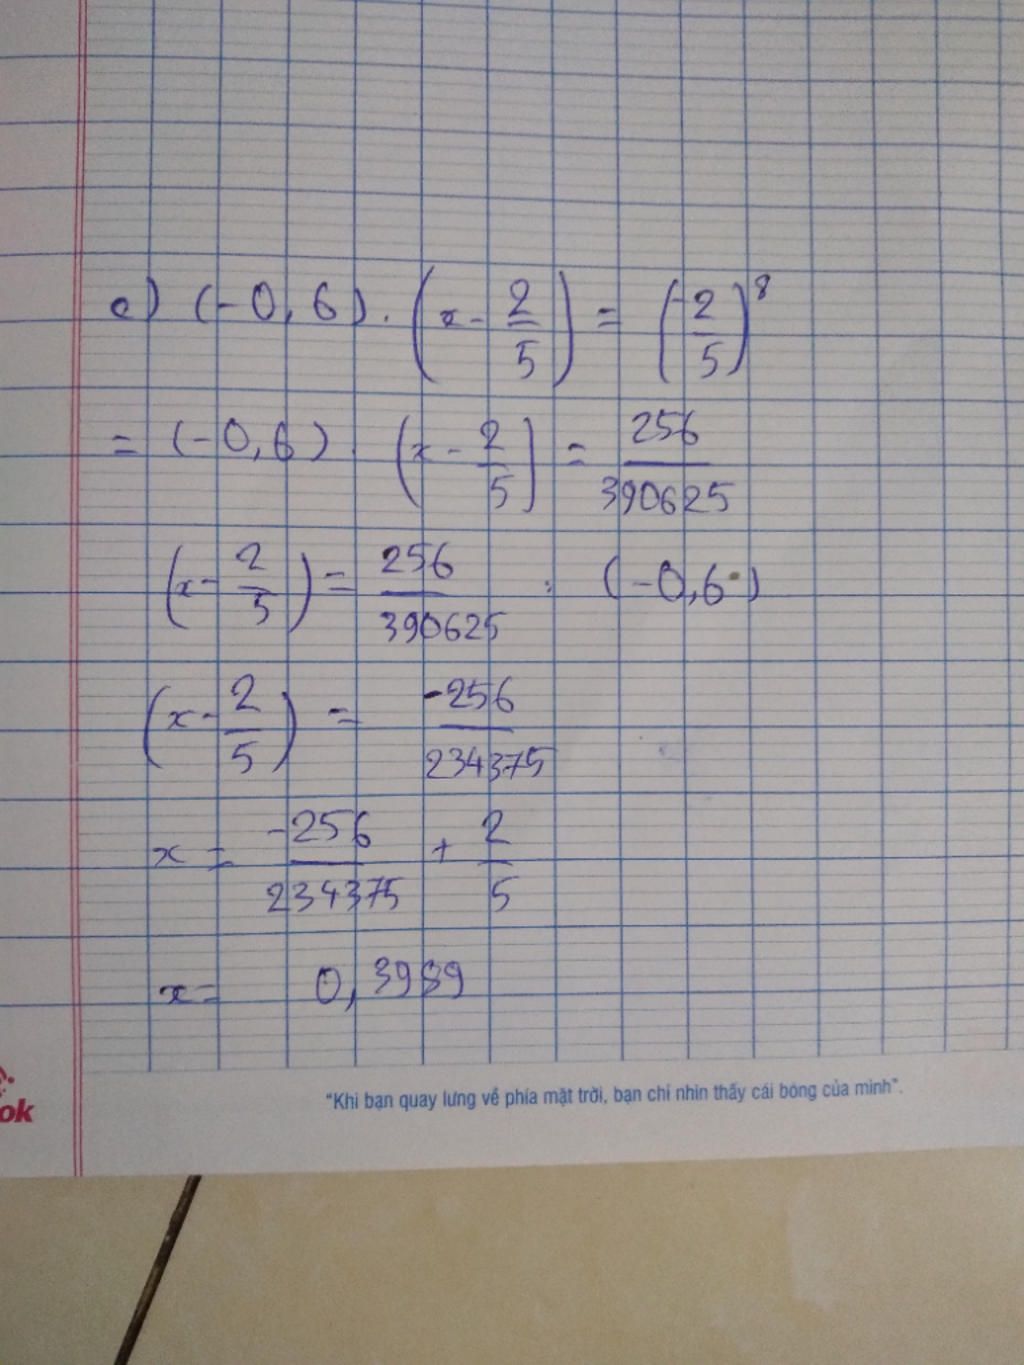 c) (-0,6) . (x - 2/5) = (-2/5)^8
= (-0,6) . (x - 2/5) = 256/390625
(x - 2/5) = 256/390625 : (-0,6)
(x - 2/5) = -256/234375
x = -256/234375 + 2/5
x = 0,3989
ok
"Khi bạn quay lưng về phía mặt trời, bạn chỉ nhìn thấy cái bóng của mình".